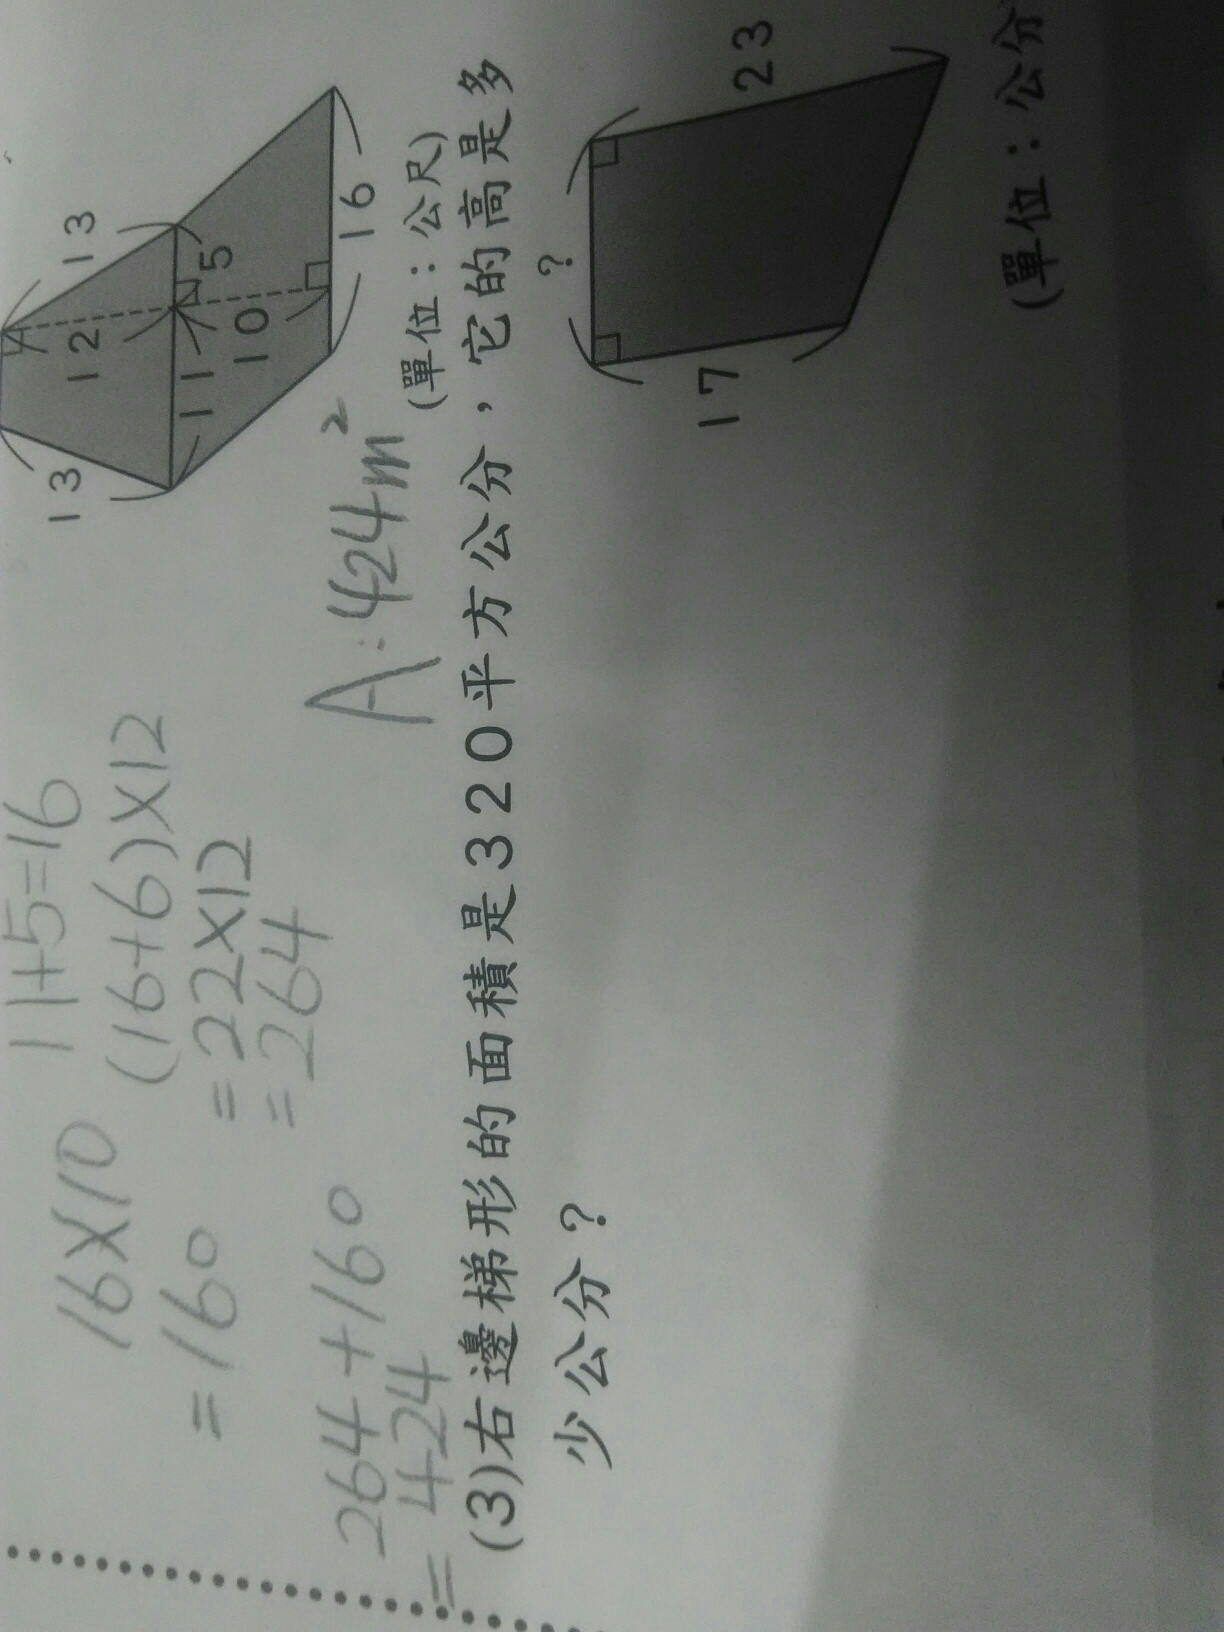 13
13
12
11
5
10
16
(單位：公尺)
11+5=16
16×10
=160
(16+6)×12
=22×12
=264
264+160
=424
A:424m²
(3)右邊梯形的面積是320平方公分，它的高是多
少公分？
?
17
23
(單位：公分